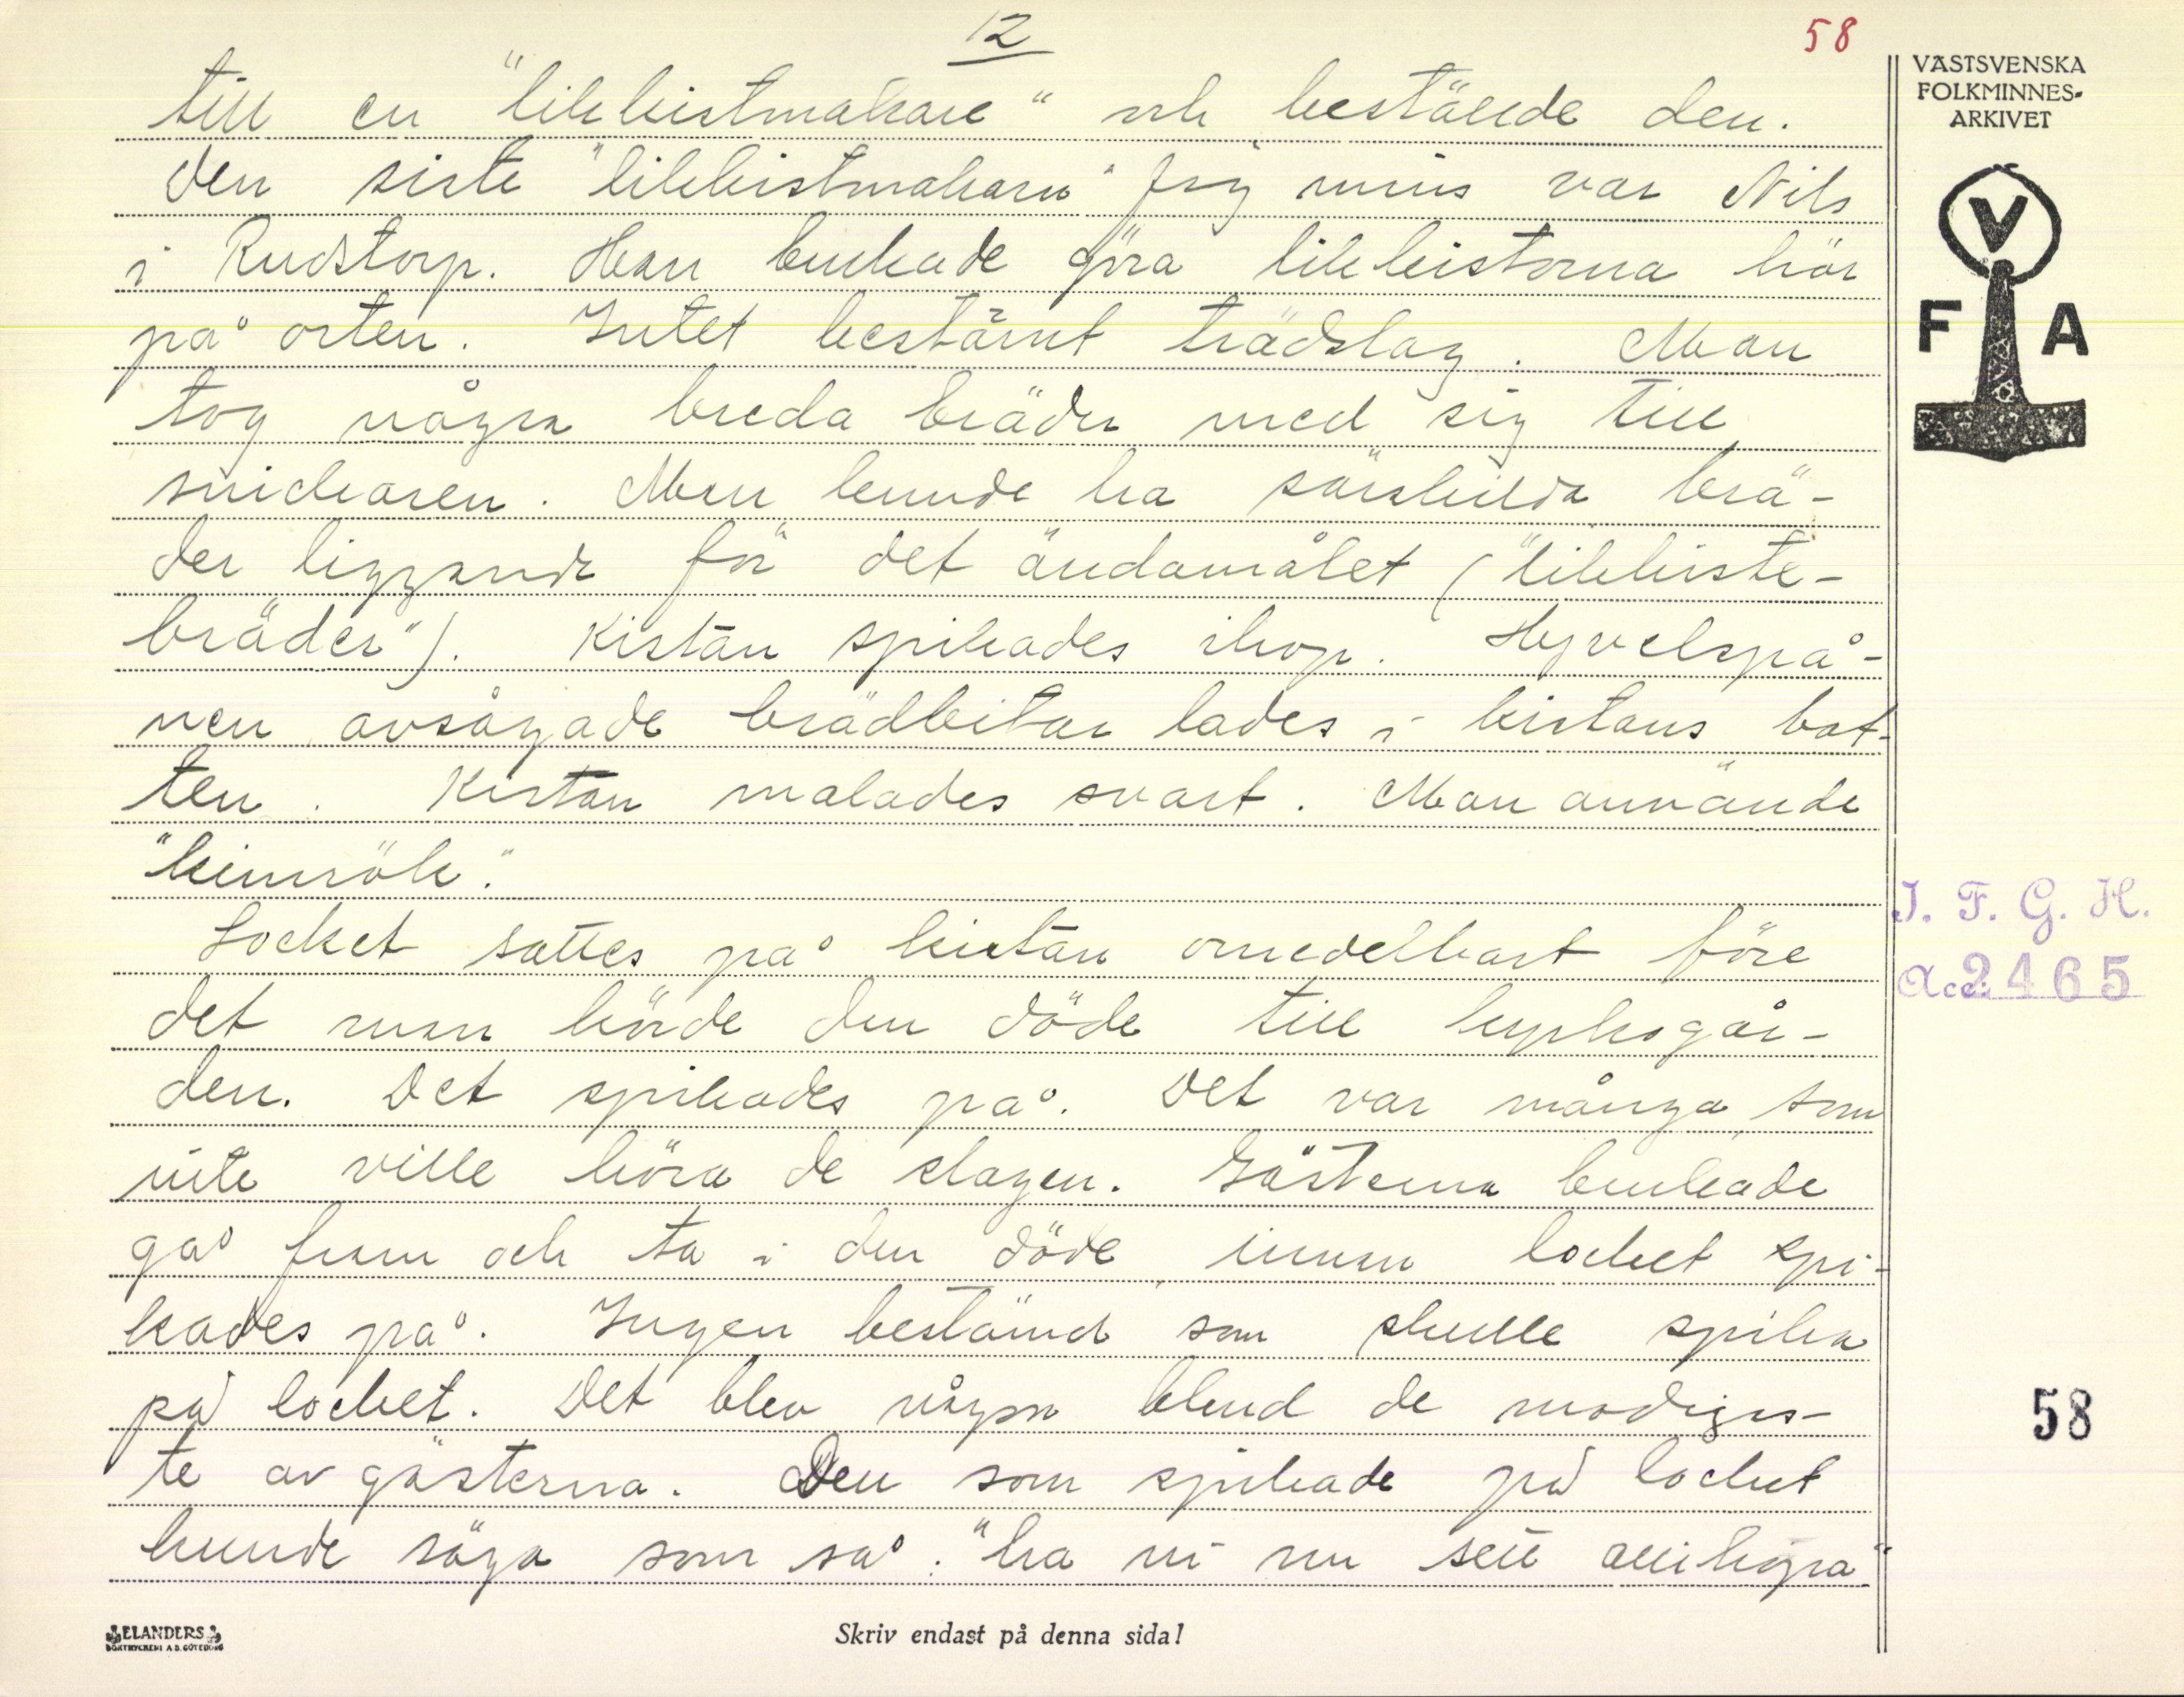 12
58
till en "likkistmakare" och beställde den.
Den siste "likkistmakarn" jag mins var Nils
i Rudstorp. Han brukade göra likkistorna här
på orten. Intet bestämt trädslag. Man
tog några breda bräder med sig till
snickaren. Man kunde ha särskilda brä-
der liggande för det ändamålet ("likkiste-
bräder"). Kistan spikades ihop. Hyvelspå-
nen avsågade brädbitar lades i kistans bot-
ten. Kistan målades svart. Man använde
"kimrök".
Locket sattes på kistan omedelbart före
det man körde den döde till kyrkogår-
den. Det spikades på. Det var många som
inte ville höra de slagen. Gästerna brukade
gå fram och ta i den döde, innan locket spi-
kades på. Ingen bestämd som skulle spika
på locket. Det blev någon bland de modigas-
te av gästerna. Den som spikade på locket
kunde säga som så: "ha ni nu sett allihopa"
VÄSTSVENSKA
FOLKMINNES-
ARKIVET
V
F A
I. F. G. H.
Acc. 2465
58
ELANDERS
BOKTRYCKERI A.B. GÖTEBORG
Skriv endast på denna sida!